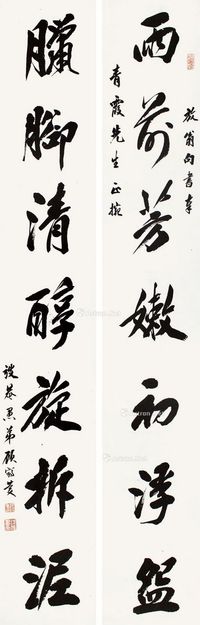 雨前芳嫩初浮盌
放翁句書奉
青霞先生正
臘腳清醇旋拆泥
弟顧